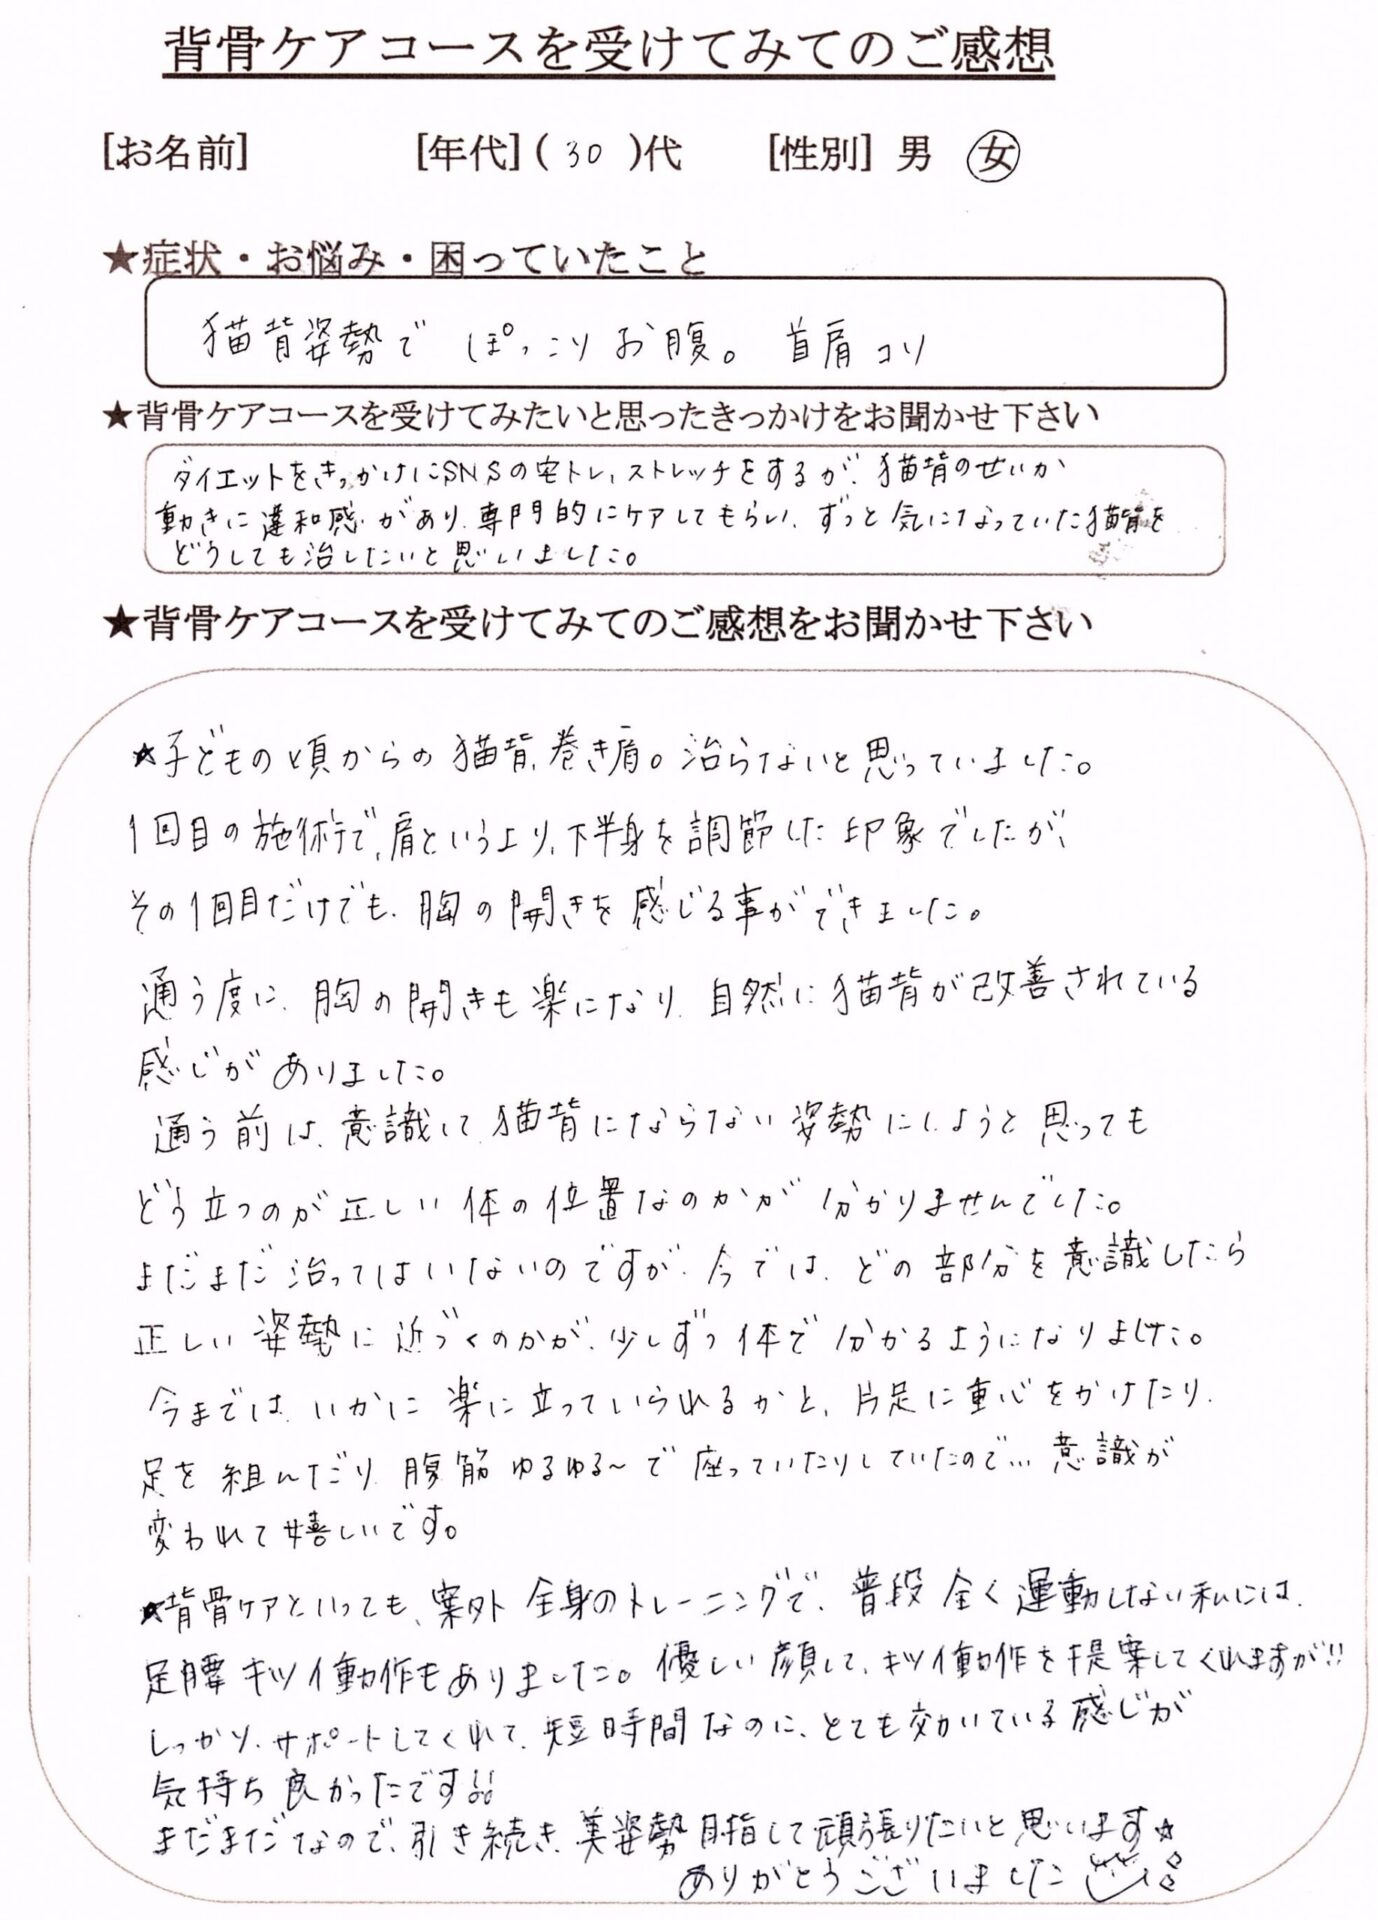 背骨ケアコースを受けてみてのご感想
[お名前] [年代](30)代 [性別] 男 女
★症状・お悩み・困っていたこと
猫背姿勢で ぽっこりお腹。首肩コリ
★背骨ケアコースを受けてみたいと思ったきっかけをお聞かせ下さい
ダイエットをきっかけにSNSの宅トレ、ストレッチをするが、猫背のせいか
動きに違和感があり、専門的にケアしてもらい、ずっと気になっていた猫背を
どうしても治したいと思いました。
★背骨ケアコースを受けてみてのご感想をお聞かせ下さい
★子どもの頃からの猫背、巻き肩。治らないと思っていました。
1回目の施術で、肩というより、下半身を調節した印象でしたが、
その1回目だけでも、胸の開きを感じる事ができました。
通う度に、胸の開きも楽になり、自然に猫背が改善されている
感じがありました。
通う前は、意識して猫背にならない姿勢にしようと思っても
どう立つのが正しい体の位置なのかが分かりませんでした。
まだまだ治ってはいないのですが、今では、どの部分を意識したら
正しい姿勢に近づくのかが、少しずつ体で分かるようになりました。
今までは、いかに楽に立っていられるかと、片足に重心をかけたり、
足を組んだり、腹筋ゆるゆる〜で座っていたりしていたので…意識が
変われて嬉しいです。
★背骨ケアといっても、案外全身のトレーニングで、普段全く運動しない私には、
足腰キツイ動作もありました。優しい顔して、キツイ動作を提案してくれますが!!
しっかり、サポートしてくれて、短時間なのに、とても効いている感じが
気持ち良かったです!!
まだまだなので、引き続き、美姿勢目指して頑張りたいと思います☆
ありがとうございました